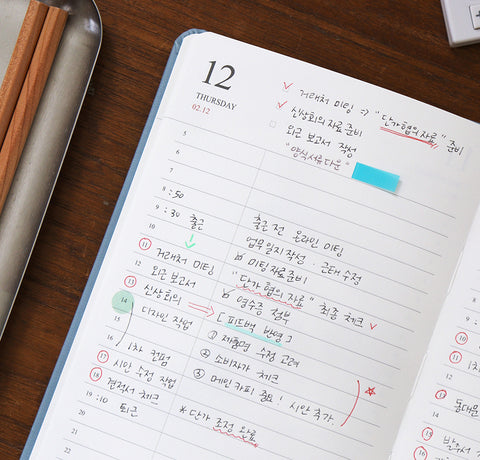 12
THURSDAY
02.12
거래처 미팅 => "단가협의자료" 준비
신상회의 자료 준비
외근 보고서 작성
"양식서류다운"
5
6
7
8 :50
9 :30 출근
11 거래처 미팅
12 외근 보고서
13 신상회의
14 디자인 작업
15
16 1차 컨펌
17 시안 수정 작업
18 견적서 체크
19 :10 퇴근
20
21
22
출근 전 온라인 미팅
업무일지작성 · 근태수정
미팅자료준비
"단가 협의 자료" 최종 체크
영수증 첨부
[피드백 반영]
① 제품명 수정 고려
② 소비자가 체크
③ 메인카피 중요! 시안 추가.
* 단가 조정 완료
9
10
11
12
13
14
15
16
17 동대문
18
19
20
21